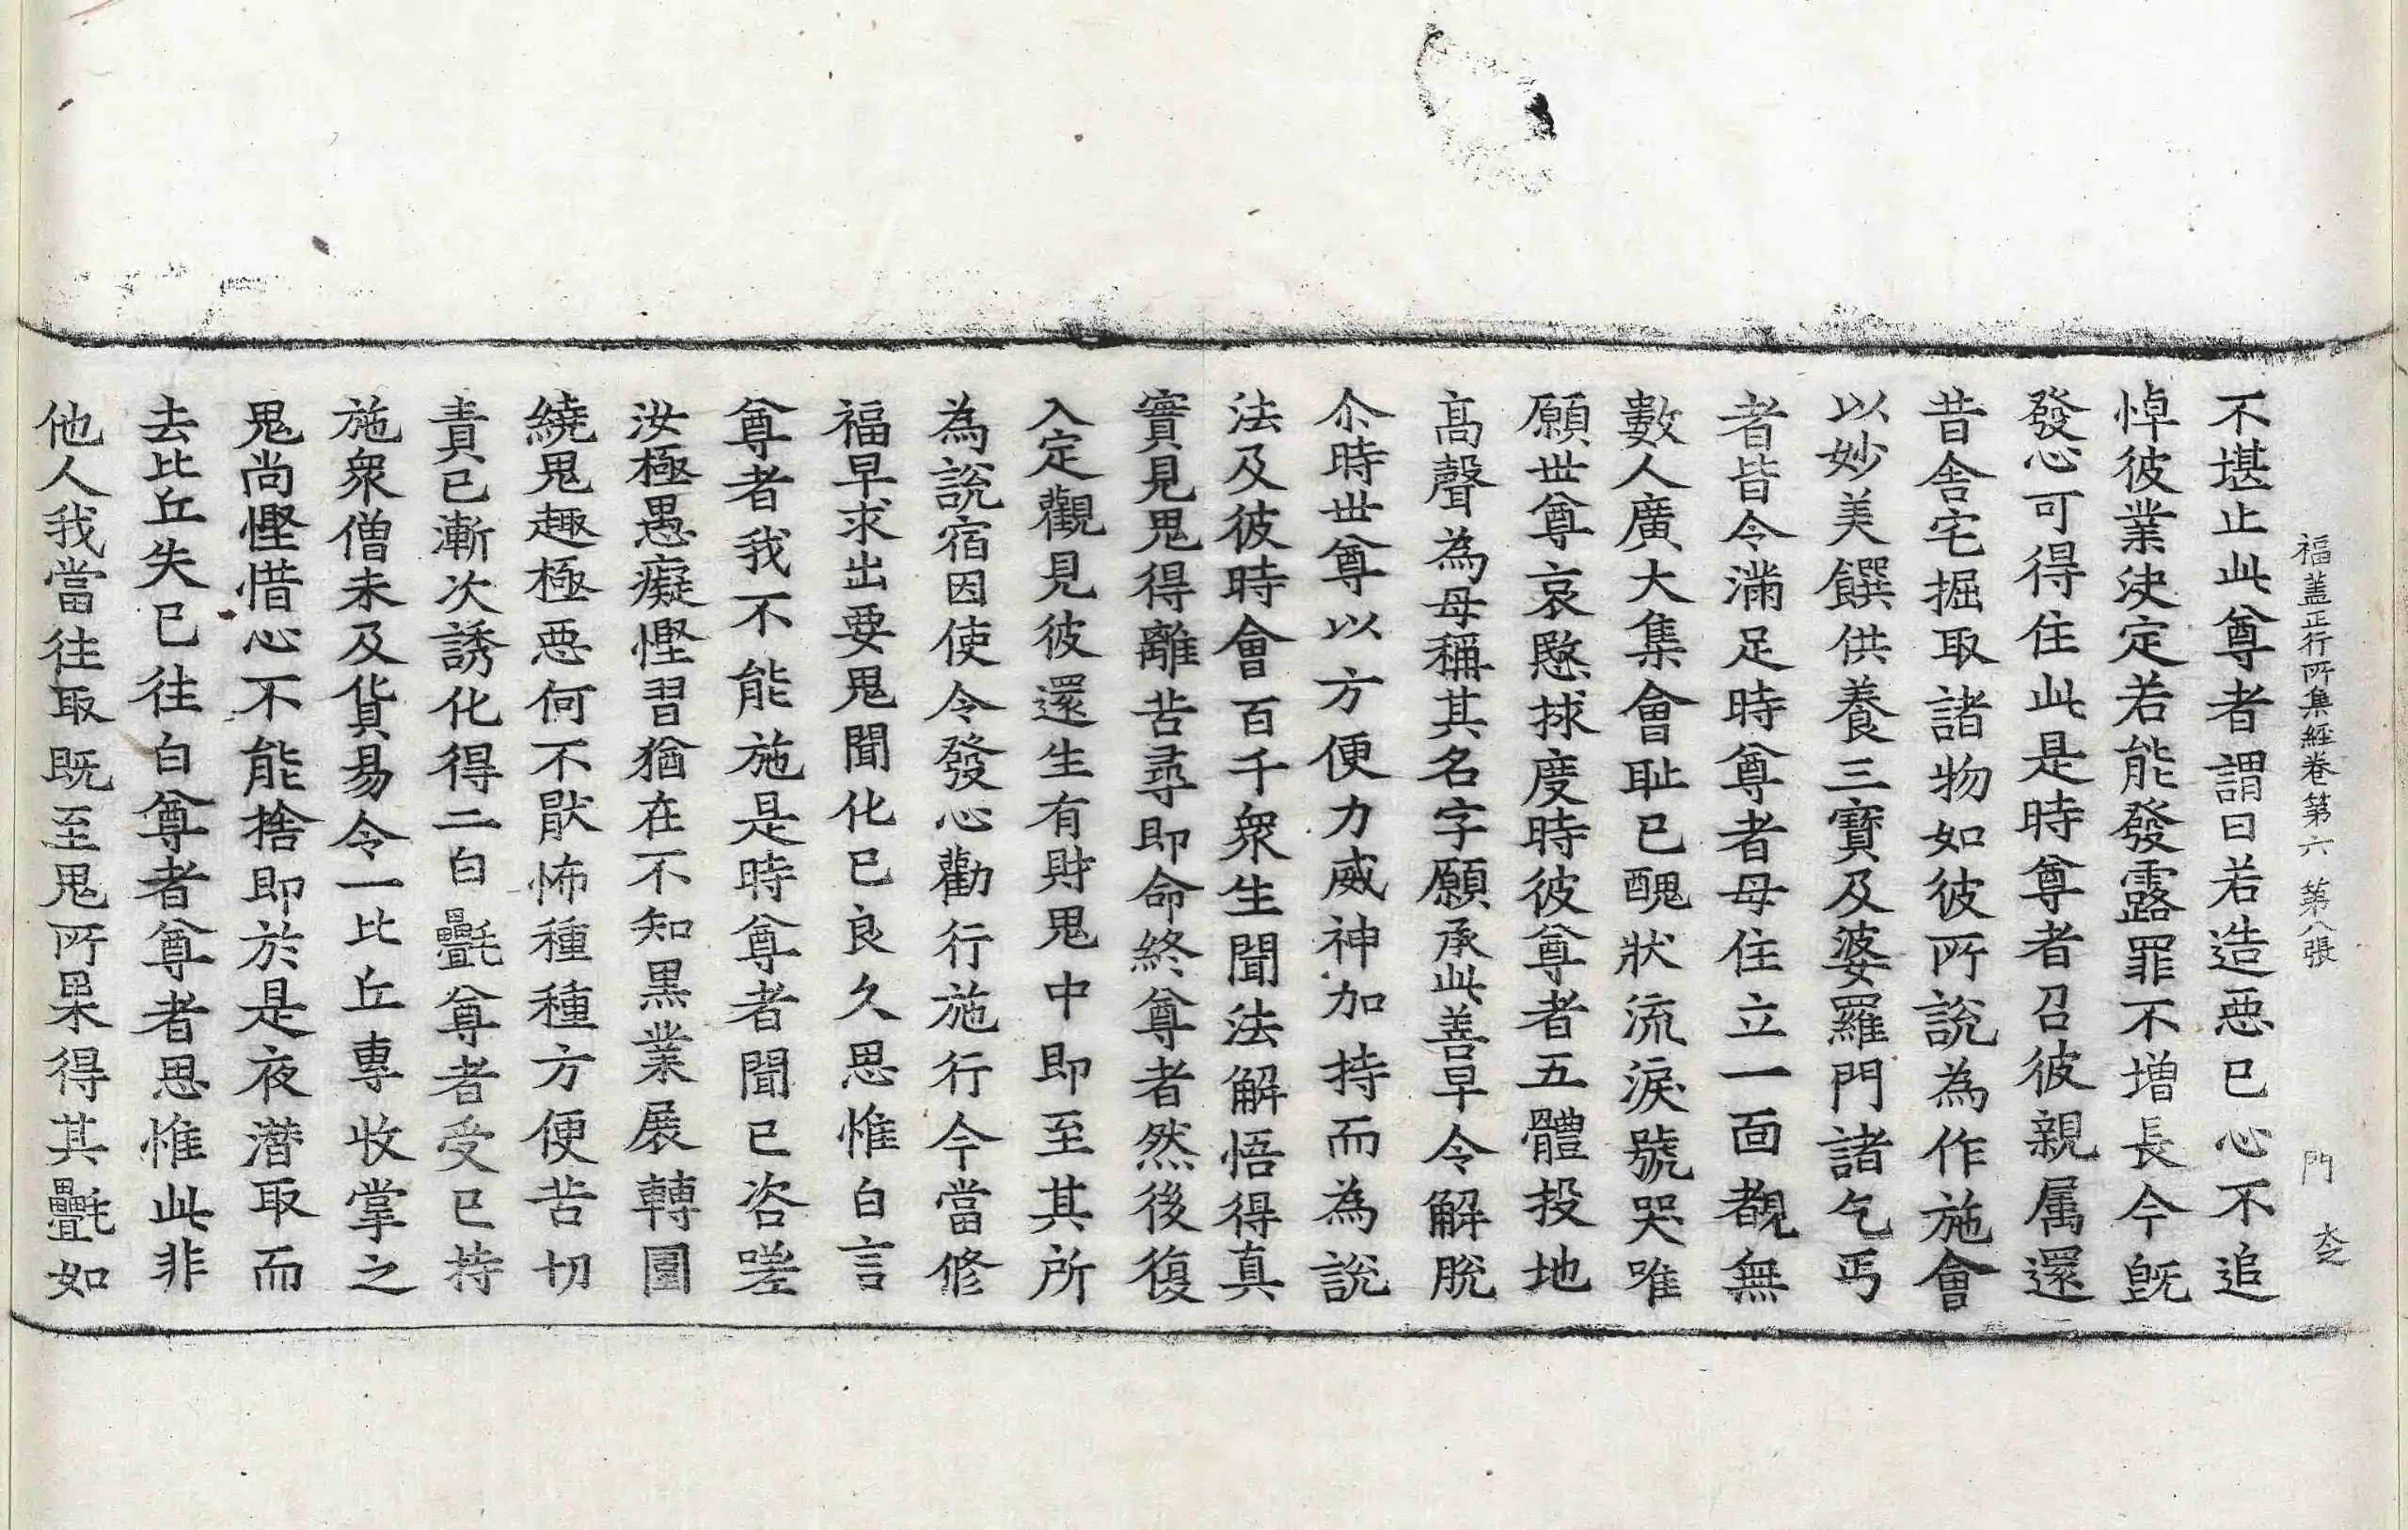 福蓋正行所集經卷第六 第八張 門
不堪止此尊者謂曰若造惡已心不追
悼彼業決定若能發露罪不增長今旣
發心可得住此是時尊者召彼親属還
昔舍宅掘取諸物如彼所說為作施會
以妙美饌供養三寶及婆羅門諸乞丐
者皆令滿足時尊者母住立一面覩無
數人廣大集會恥已醜狀流淚號哭唯
願世尊哀愍捄度時彼尊者五體投地
高聲為母稱其名字願承此善早令解脫
尒時世尊以方便力威神加持而為說
法及彼時會百千衆生聞法解悟得真
實見鬼得離苦尋即命終尊者然後復
入定觀見彼還生有財鬼中即至其所
為說宿因使令發心勸行施行今當修
福早求出要鬼聞化已良久思惟白言
尊者我不能施是時尊者聞已咨嗟
汝極愚癡慳習猶在不知黑業展轉圍
繞鬼趣極惡何不猒怖種種方便苦切
責已漸次誘化得二白㲲尊者受已持
施衆僧未及貨易令一比丘專收掌之
鬼尚慳惜心不能捨即於是夜潛取而
去比丘失已往白尊者尊者思惟此非
他人我當往取既至鬼所果得其㲲如